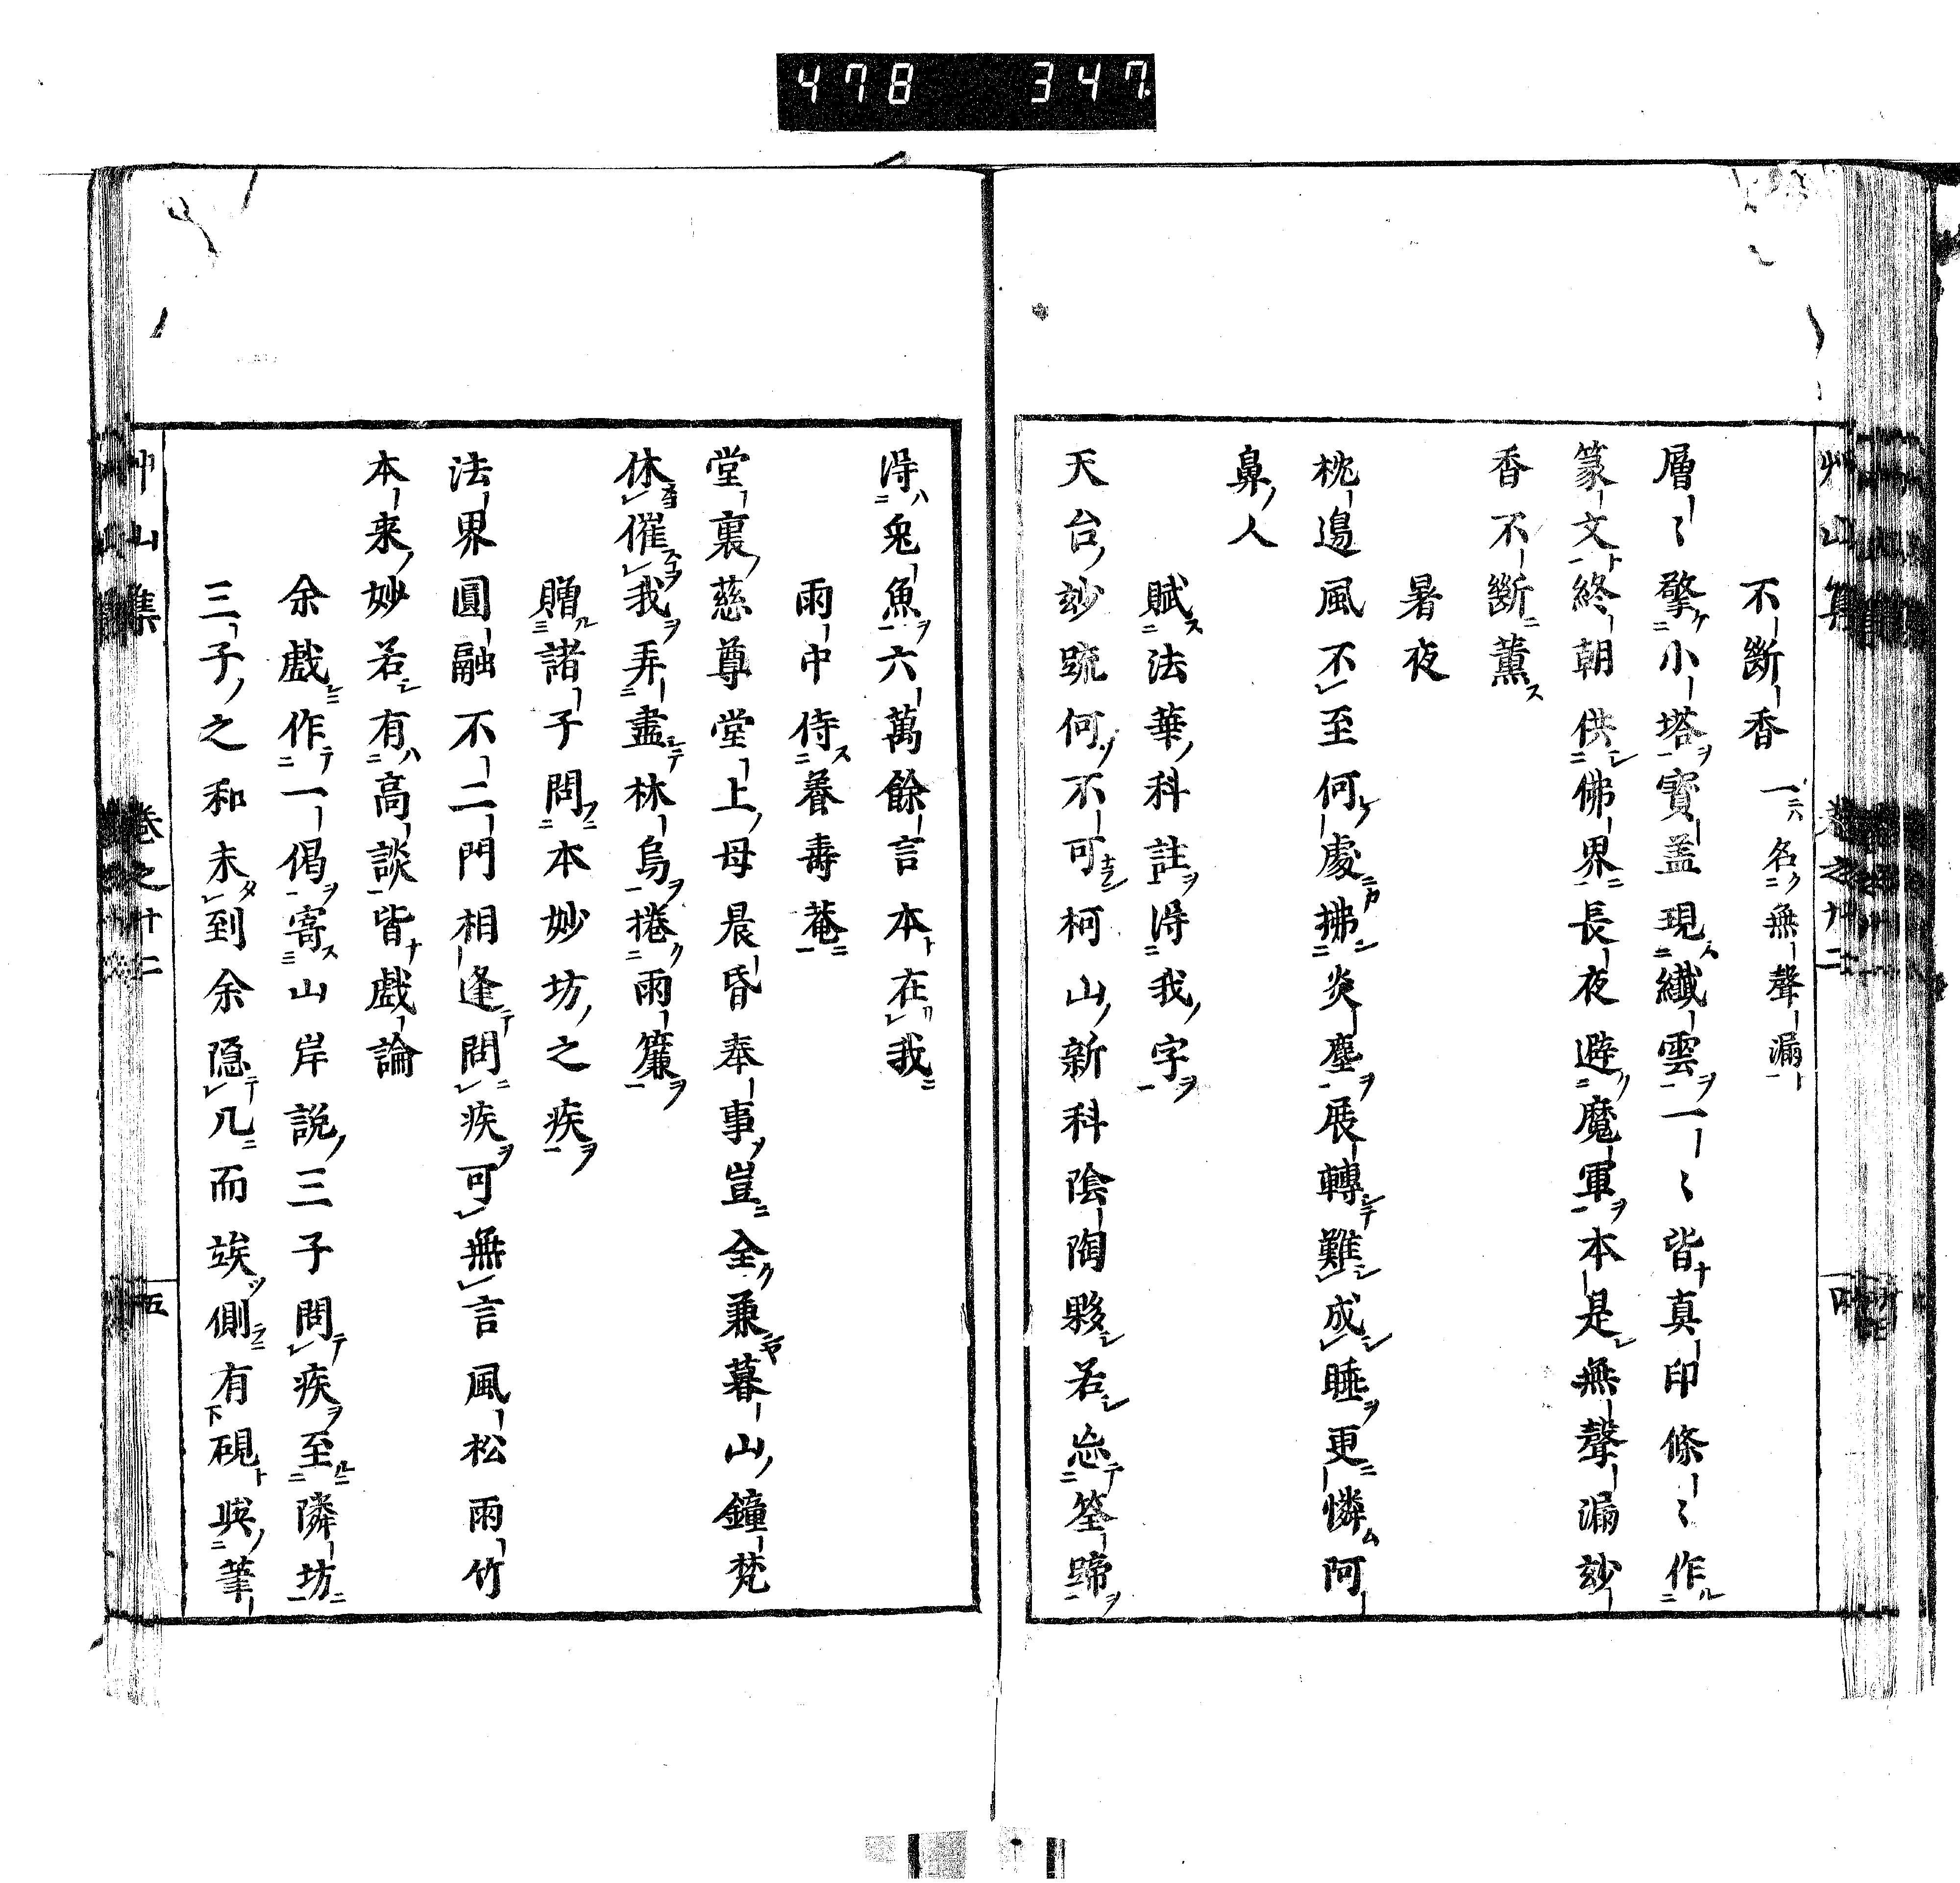 478 347
艸山集 卷之廿二 四
不斷香 一名無聲漏
層〻擎小塔寳盖現纎雲一〻皆真印條〻作
篆文終朝供佛界長夜避魔軍本是無聲漏玅
香不斷薫
暑夜
枕邊風不至何處拂炎塵展轉難成睡更憐阿
鼻人
賦法華科註得我字
天台玅䟽何不可柯山新科陰陶夥若忘筌蹄
得兔魚六萬餘言本在我
雨中侍養壽菴
堂裏慈尊堂上母晨昏奉事豈全兼暮山鐘梵
休催我弄盡林烏捲雨簾
贈諸子問本妙坊之疾
法界圓融不二門相逢問疾可無言風松雨竹
本来妙若有高談皆戲論
余戲作一偈寄山岸説三子問疾至隣坊
三子之和未到余隠几而竢側有硯與筆
艸山集 卷之廿二 五